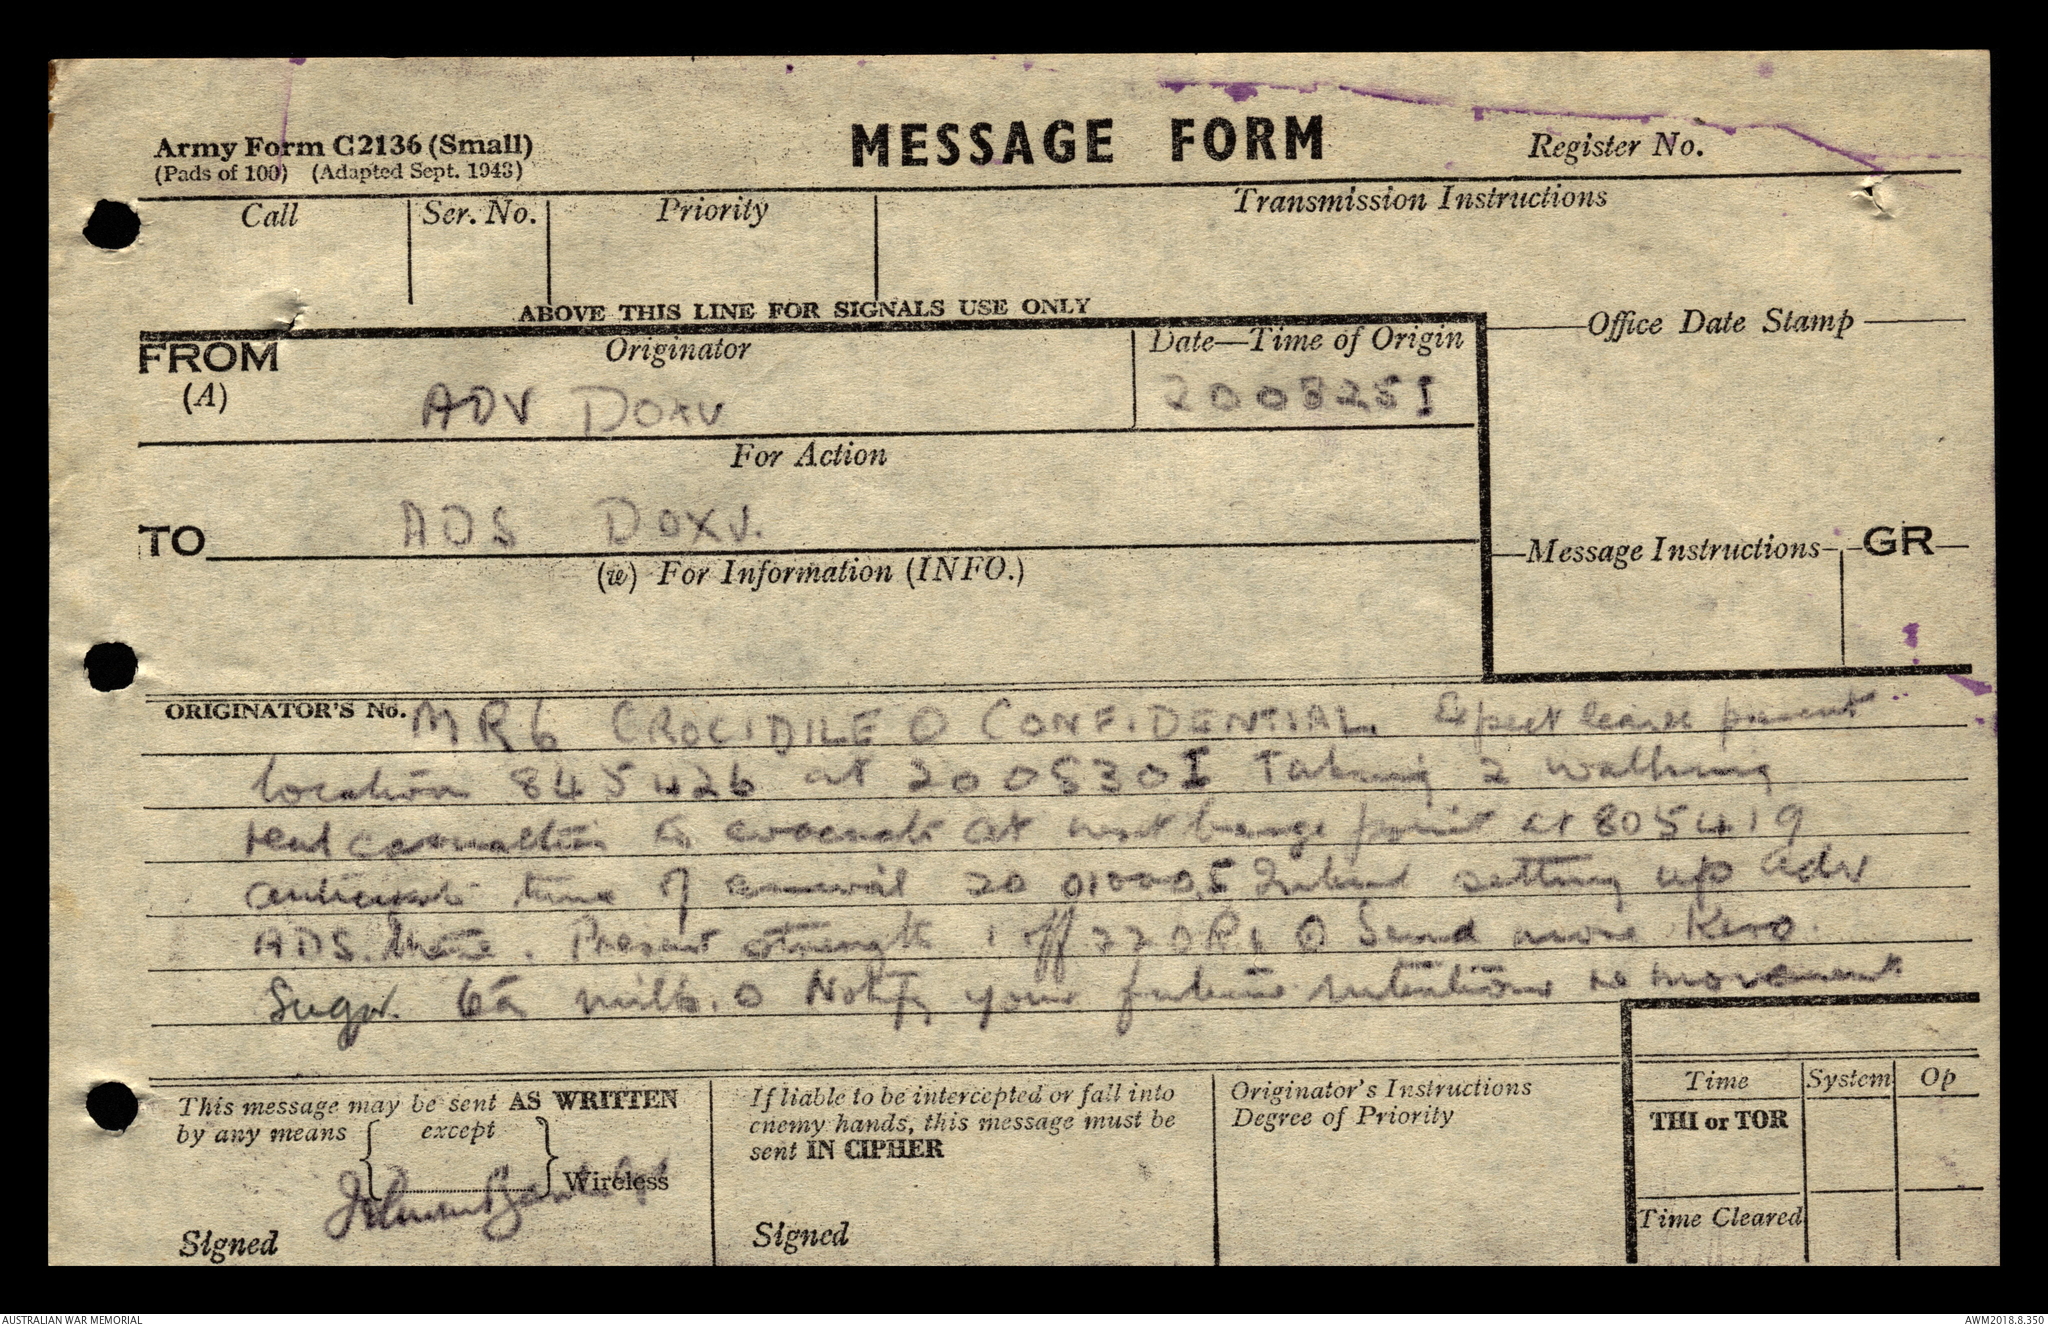 Army Form C2136 (Small)
(Pads of 100) (Adapted Sept. 1943)
MESSAGE FORM
Register No.
Call
Ser. No.
Priority
Transmission Instructions
ABOVE THIS LINE FOR SIGNALS USE ONLY
FROM
(A)
Originator
ADV DOXV
Date—Time of Origin
200825I
Office Date Stamp
For Action
TO
ADS DOXV.
(w) For Information (INFO.)
Message Instructions
GR
ORIGINATOR'S No. MR6 CROCIDILE O CONFIDENTIAL. Expect leave present
location 845426 at 200830I Taking 2 walking
real casualties to evacuate at west barge point at 805419
anticipate time of arrival 20 Intend setting up adv
ADS there. Present strength 1 off 77 ORs O Send more Kero.
Sugar. milk. O Notify your future intentions re movement
This message may be sent AS WRITTEN
by any means
except
Wireless
Signed
If liable to be intercepted or fall into
enemy hands, this message must be
sent IN CIPHER
Signed
Originator's Instructions
Degree of Priority
Time
System
Op
THI or TOR
Time Cleared
AUSTRALIAN WAR MEMORIAL
AWM2018.8.350